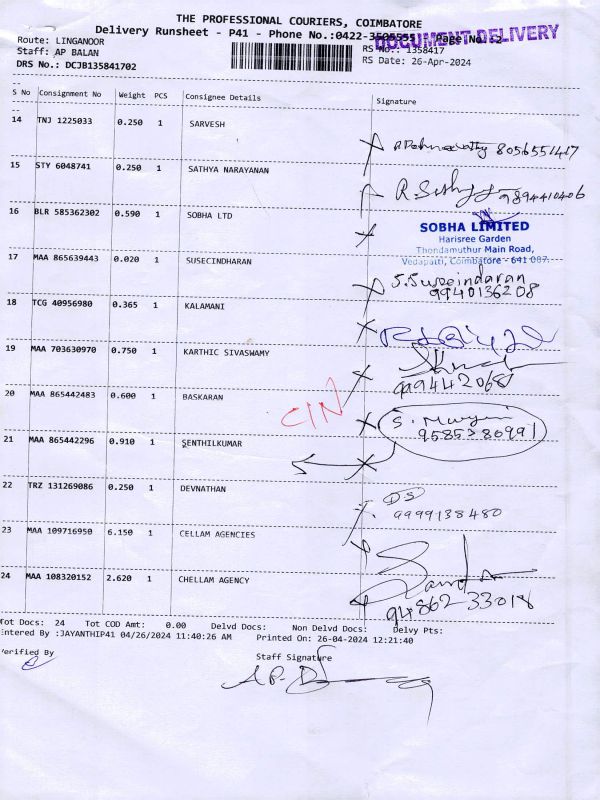 THE PROFESSIONAL COURIERS, COIMBATORE
Delivery Runsheet - P41 - Phone No.:0422- Page No.:2
DOCUMENT DELIVERY
Route: LINGANOOR
RS No.: 1358417
Staff: AP BALAN
RS Date: 26-Apr-2024
DRS No.: DCJB135841702
S No Consignment No Weight PCS Consignee Details Signature
14 TNJ 1225033 0.250 1 SARVESH
8056551417
15 STY 6048741 0.250 1 SATHYA NARAYANAN
9894410406
16 BLR 585362302 0.590 1 SOBHA LTD
SOBHA LIMITED
Harisree Garden
Thondamuthur Main Road,
Vedapatti, Coimbatore - 641 007.
17 MAA 865639443 0.020 1 SUSECINDHARAN
S. Suseindaran
9940136208
18 TCG 40956980 0.365 1 KALAMANI
19 MAA 703630970 0.750 1 KARTHIC SIVASWAMY
20 MAA 865442483 0.600 1 BASKARAN
CIN
S.
9585780991
21 MAA 865442296 0.910 1 SENTHILKUMAR
22 TRZ 131269086 0.250 1 DEVNATHAN
DS
9999138480
23 MAA 109716950 6.150 1 CELLAM AGENCIES
24 MAA 108320152 2.620 1 CHELLAM AGENCY
94862 33018
Tot Docs: 24 Tot COD Amt: 0.00 Delvd Docs: Non Delvd Docs: Delvy Pts:
Entered By :JAYANTHIP41 04/26/2024 11:40:26 AM Printed On: 26-04-2024 12:21:40
Verified By
Staff Signature